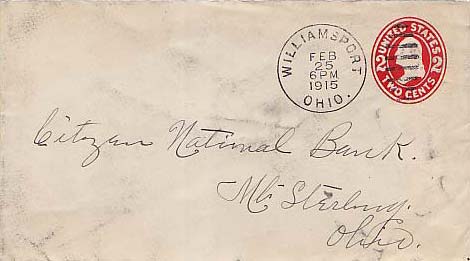 WILLIAMSPORT
FEB
25
6PM
1915
OHIO.
UNITED STATES
2 2
TWO CENTS
Citizen National Bank.
Mt Sterling.
Ohio.